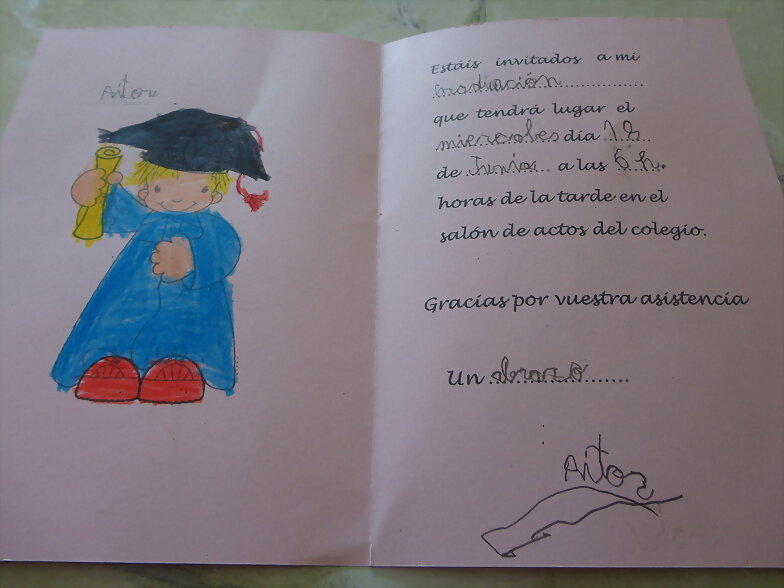 Aitor
Estáis invitados a mi
graduación
que tendrá lugar el
miercoles día
de Junio a las 6 h.
horas de la tarde en el
salón de actos del colegio.
Gracias por vuestra asistencia
Un abrazo
Aitor